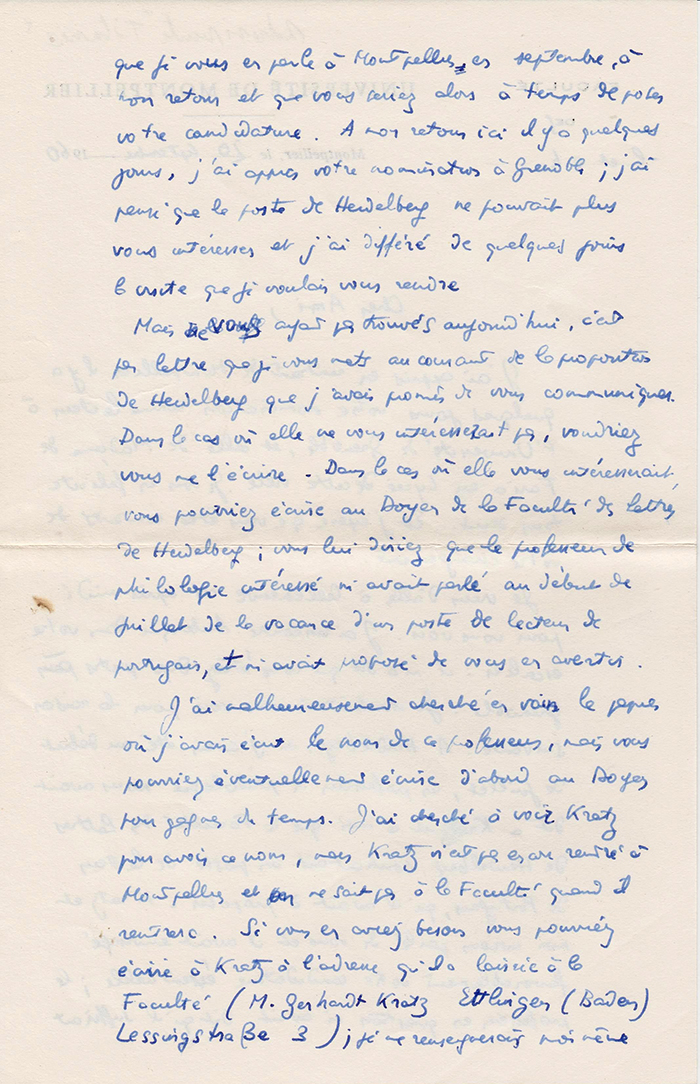 que je vous en parle à Montpellier, en septembre, à
mon retour et que vous seriez alors à temps de poser
votre candidature. A mon retour ici il y a quelques
jours, j'ai appris votre nomination à Grenoble ; j'ai
pensé que le poste de Heidelberg ne pouvait plus
vous intéresser et j'ai différé de quelques jours
la visite que je voulais vous rendre
Mais ne vous ayant pas trouvés aujourd'hui, c'est
par lettre que je vous mets au courant de la proposition
de Heidelberg que j'avais promis de vous communiquer.
Dans le cas où elle ne vous intéresserait pas, voudriez
vous me l'écrire. Dans le cas où elle vous intéresserait
vous pourriez écrire au Doyen de la Faculté des lettres
de Heidelberg ; vous lui diriez que le professeur de
philologie intéressé m'avait parlé au début de
juillet de la vacance d'un poste de lecteur de
portugais, et m'avait proposé de vous en avertir.
J'ai malheureusement cherché en vain le papier
où j'avais écrit le nom de ce professeur, mais vous
pourriez éventuellement écrire d'abord au Doyen
pour gagner du temps. J'ai cherché à voir Kratz
pour avoir ce nom, mais Kratz n'est pas encore rentré à
Montpellier et on ne sait pas à la Faculté quand il
rentrera. Si vous en aviez besoin vous pourriez
écrire à Kratz à l'adresse qu'il a laissée à la
Faculté (M. Gerhardt Kratz Ettlingen (Baden)
Lessingstraße 3) ; je me renseignerais moi même